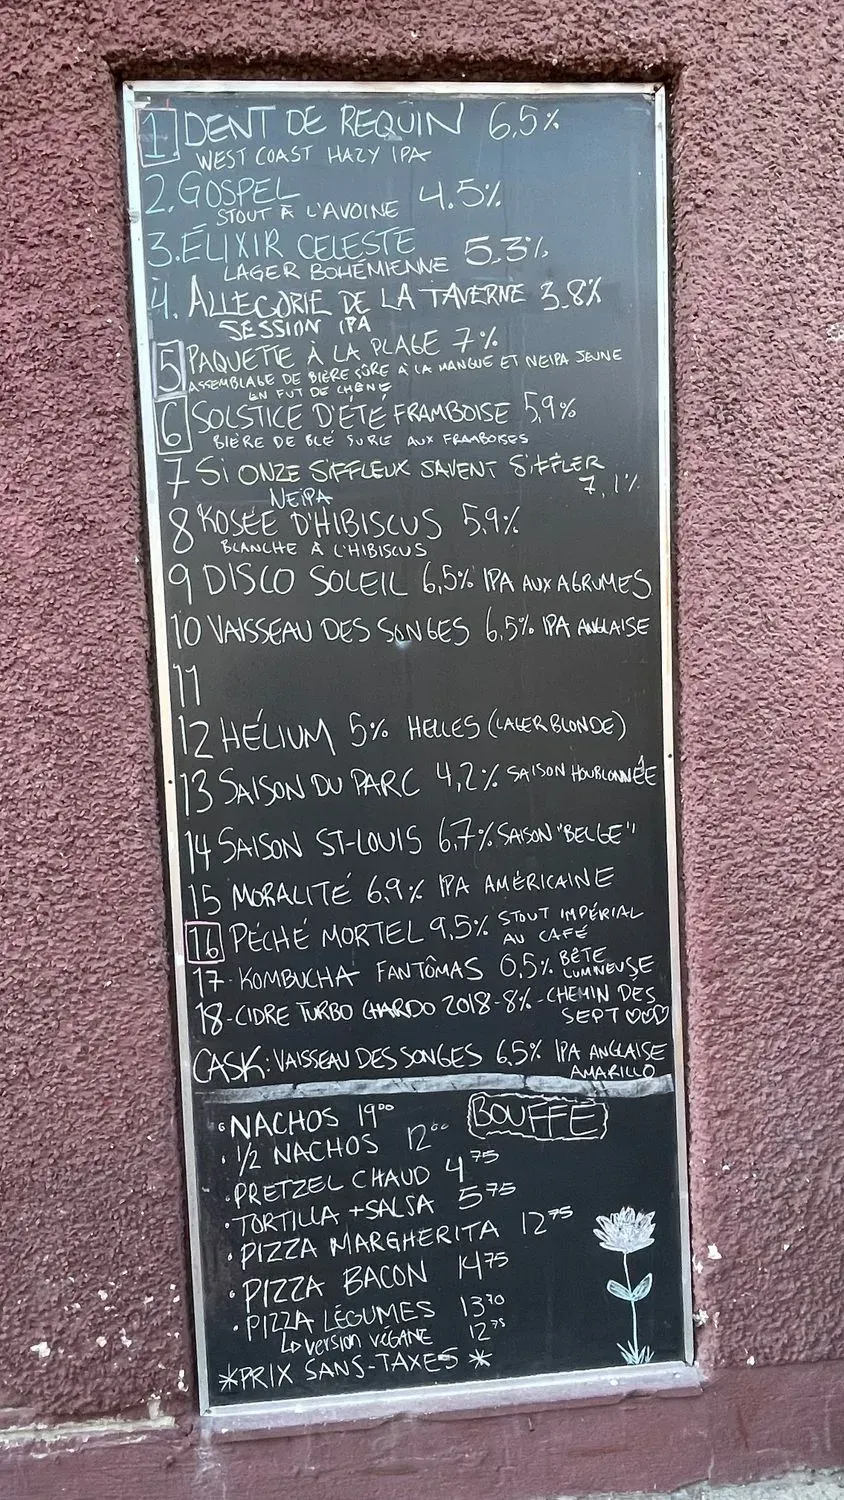 1 DENT DE REQUIN 6,5%
WEST COAST HAZY IPA
2. GOSPEL 4.5%
STOUT À L'AVOINE
3. ÉLIXIR CELESTE 5,3%
LAGER BOHÉMIENNE
4. ALLEGORIE DE LA TAVERNE 3.8%
SESSION IPA
5 PAQUETTE À LA PLAGE 7%
ASSEMBLAGE DE BIÈRE SÛRE À LA MANGUE ET NEIPA JEUNE
EN FUT DE CHÊNE
6 SOLSTICE D'ÉTÉ FRAMBOISE 5,9%
BIÈRE DE BLÉ SURE AUX FRAMBOISES
7 SI ONZE SIFFLEUX SAVENT SIFFLER
NEIPA 7,1%
8 ROSÉE D'HIBISCUS 5,9%
BLANCHE À L'HIBISCUS
9 DISCO SOLEIL 6,5% IPA AUX AGRUMES
10 VAISSEAU DES SONGES 6,5% IPA ANGLAISE
11
12 HÉLIUM 5% HELLES (LAGER BLONDE)
13 SAISON DU PARC 4,2% SAISON HOUBLONNÉE
14 SAISON ST-LOUIS 6,7% SAISON "BELGE"
15 MORALITÉ 6,9% IPA AMÉRICAINE
16 PÉCHÉ MORTEL 9,5% STOUT IMPÉRIAL
AU CAFÉ
17- KOMBUCHA FANTÔMAS 0,5% BÊTE
LUMINEUSE
18- CIDRE TURBO CHARDO 2018 - 8% - CHEMIN DES
SEPT
CASK: VAISSEAU DES SONGES 6,5% IPA ANGLAISE
AMARILLO
BOUFFE
• NACHOS 19⁰⁰
• 1/2 NACHOS 12⁰⁰
• PRETZEL CHAUD 4⁷⁵
• TORTILLA + SALSA 5⁷⁵
• PIZZA MARGHERITA 12⁷⁵
• PIZZA BACON 14⁷⁵
• PIZZA LÉGUMES 13⁷⁰
↳ version VÉGANE 12⁷⁵
*PRIX SANS-TAXES*